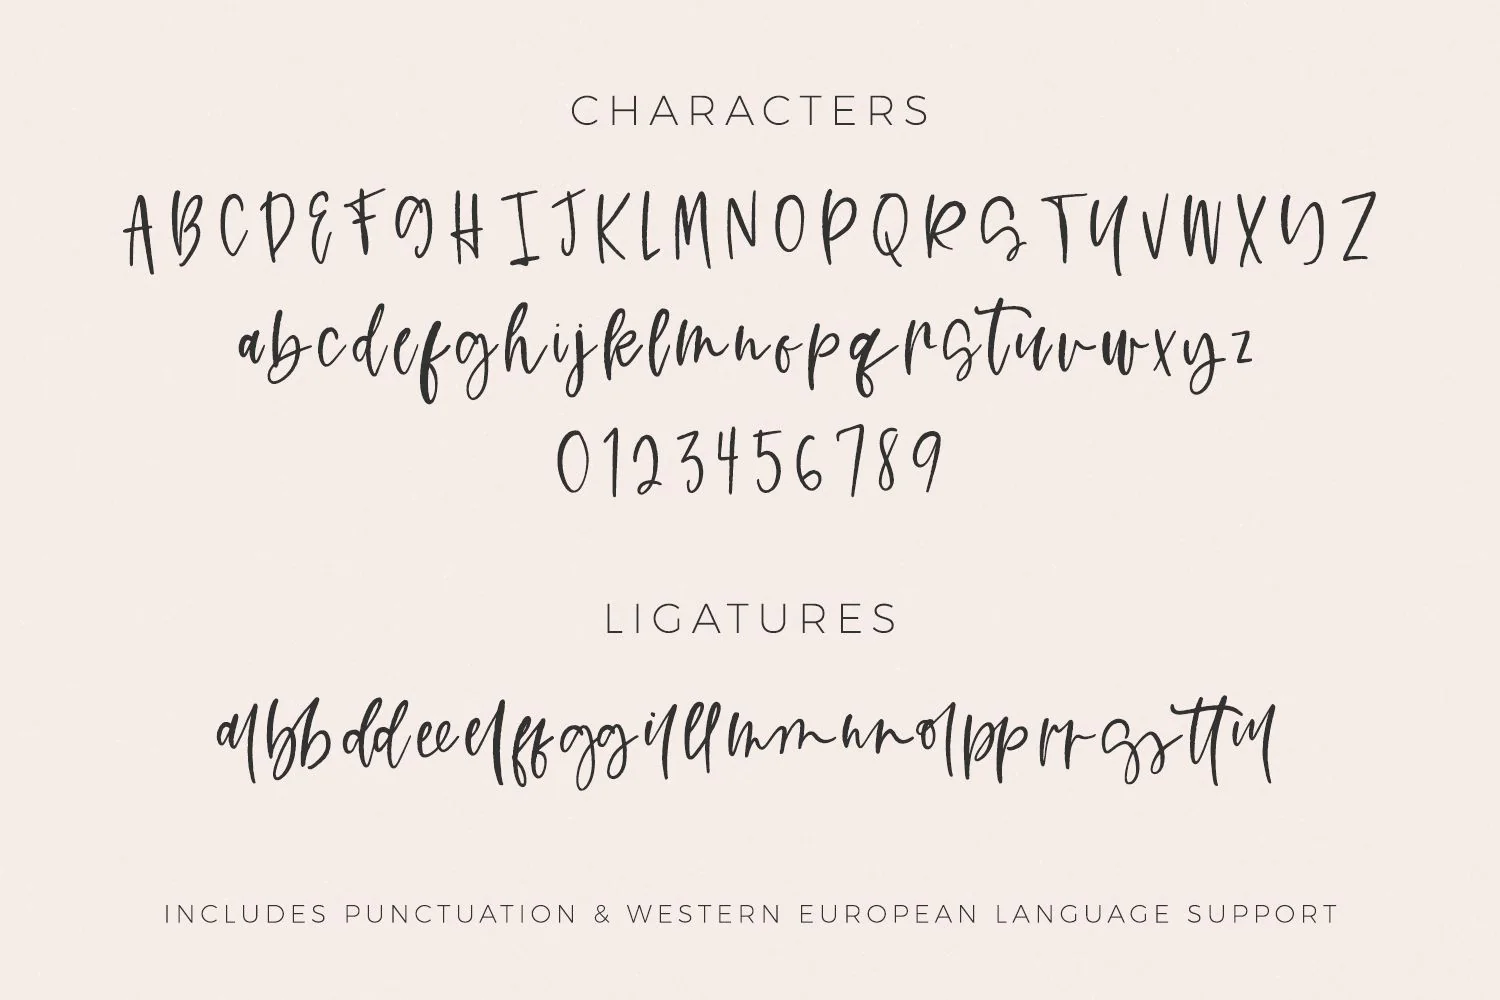 CHARACTERS
ABCDEFGHIJKLMNOPQRSTUVWXYZ
abcdefghijklmnopqrstuvwxyz
0123456789
LIGATURES
albbddeeelffggilllmmnnolpprrssttul
INCLUDES PUNCTUATION & WESTERN EUROPEAN LANGUAGE SUPPORT